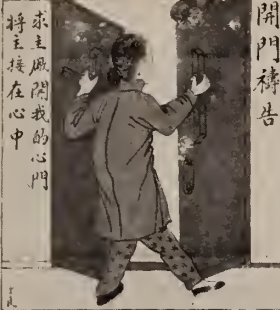 開門禱告
求主啟開我的心門
將主接在心中